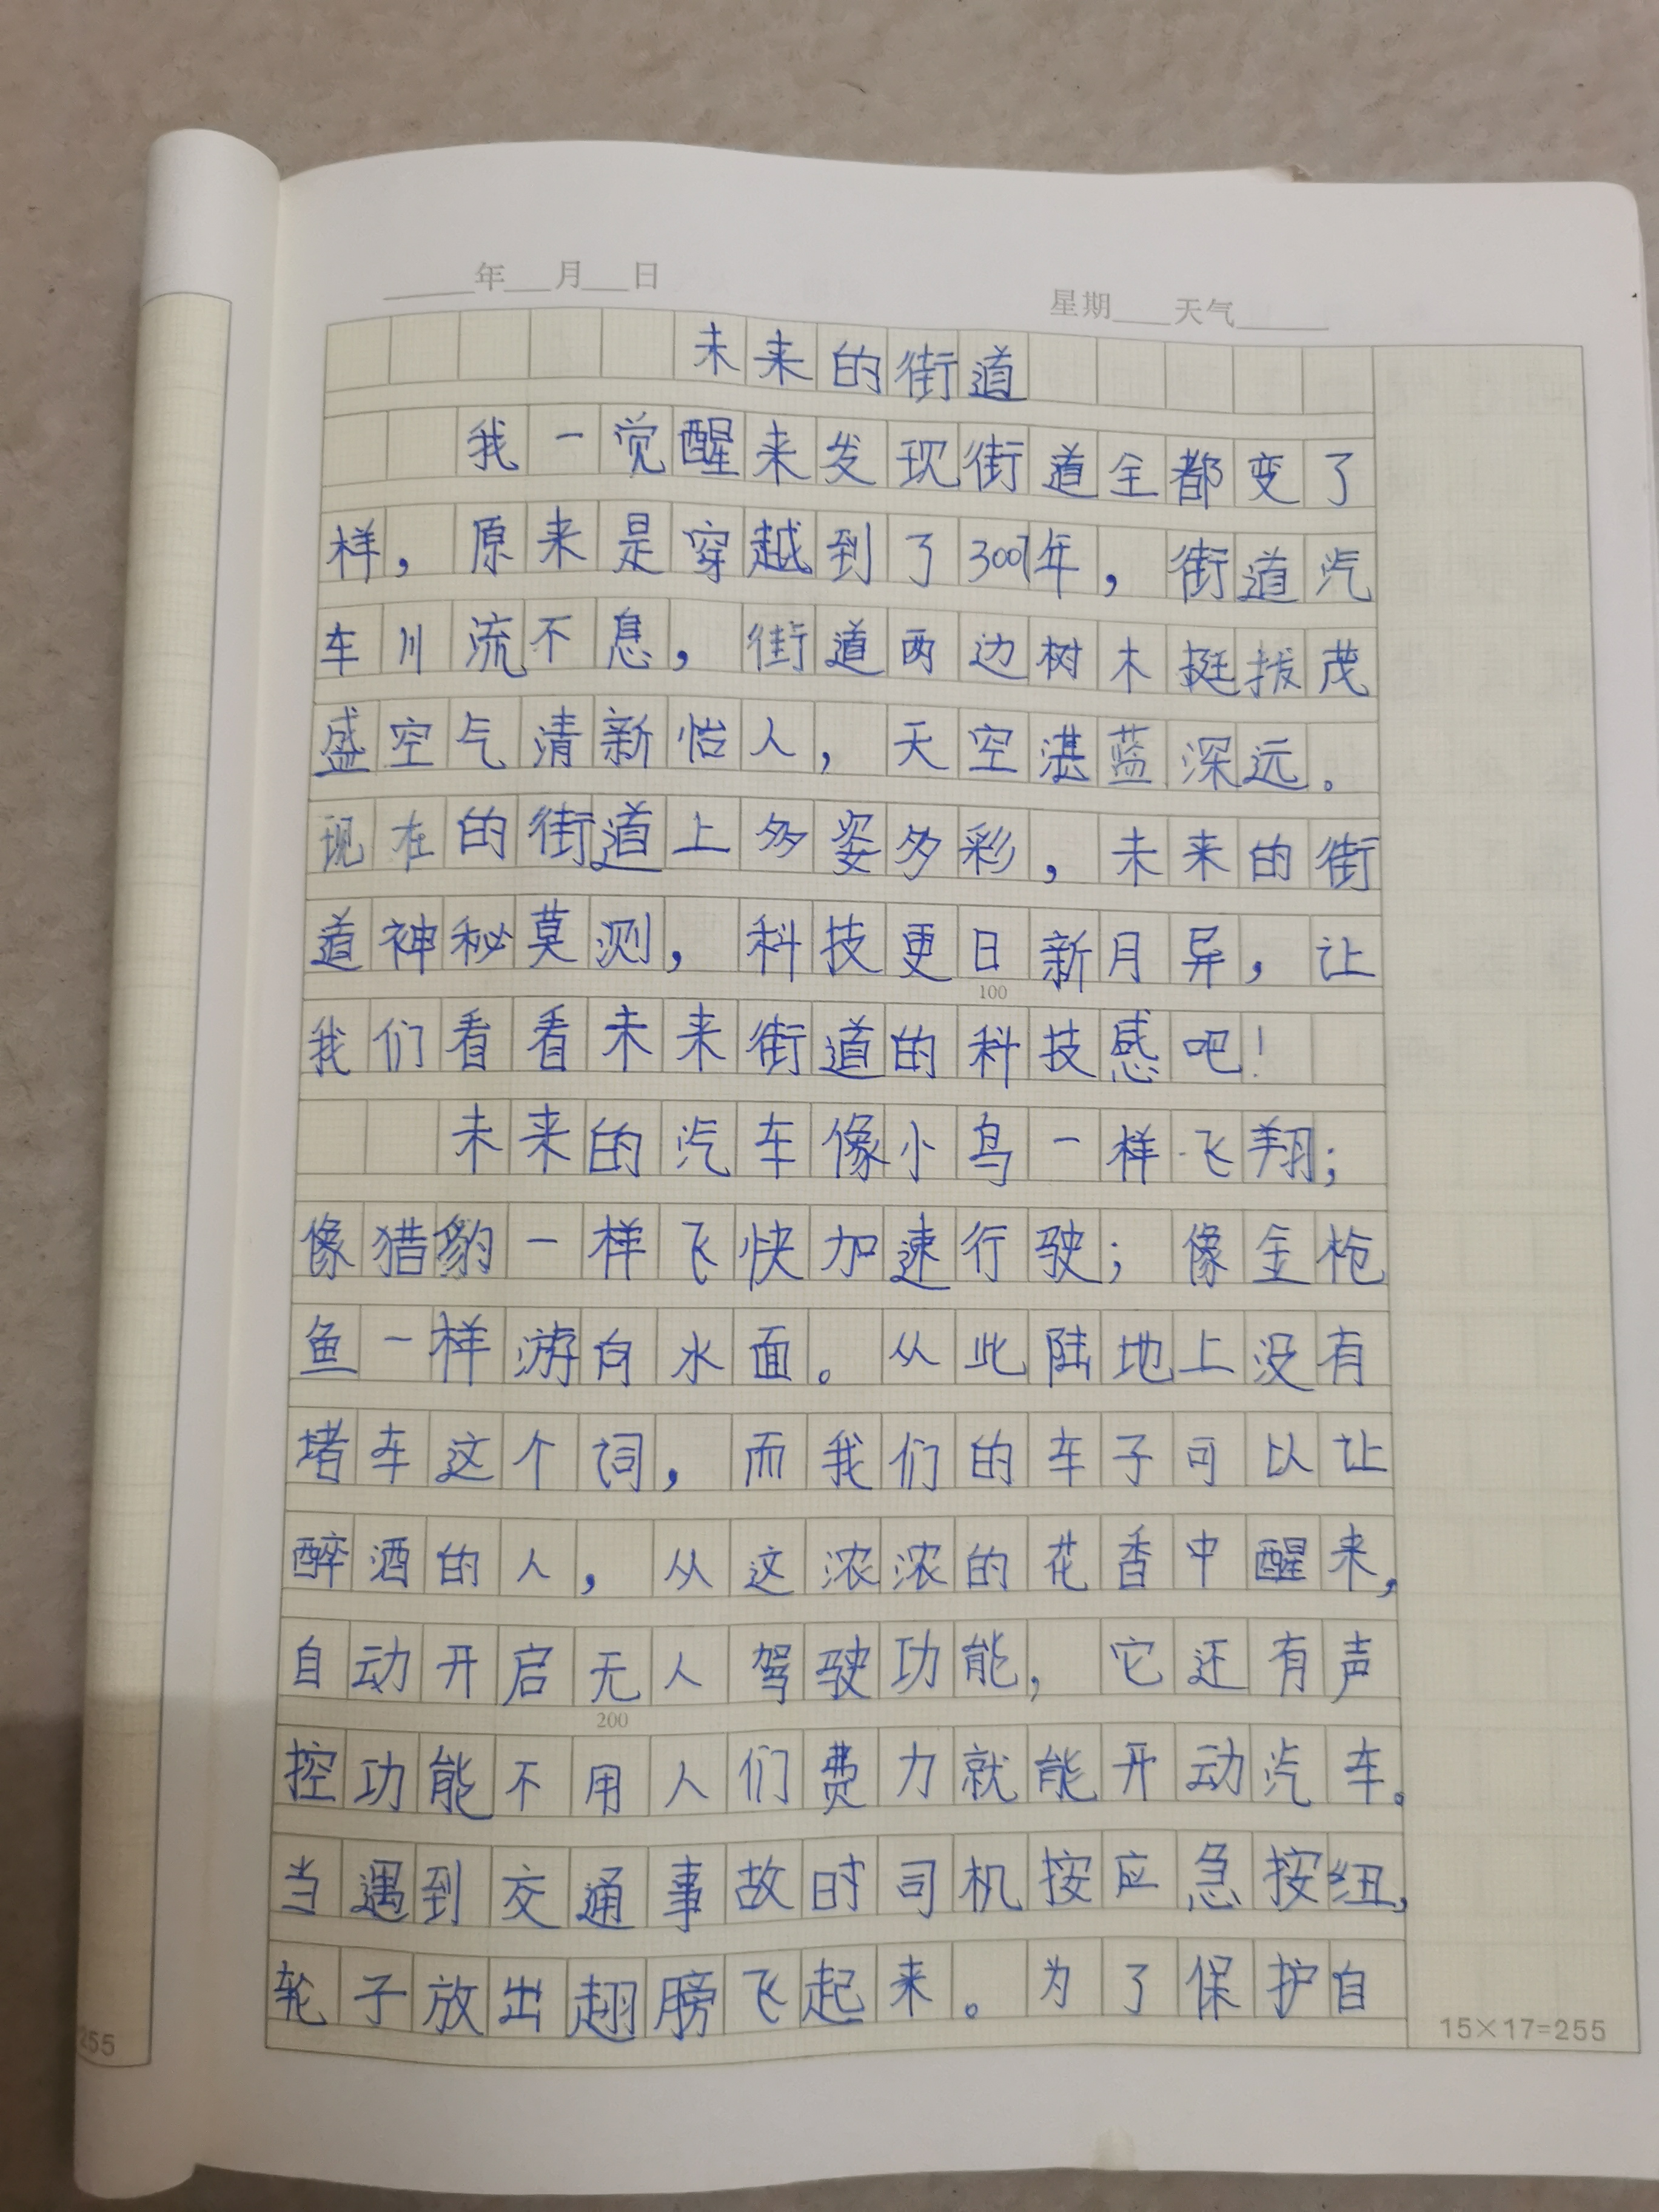 年 月 日
星期 天气
未来的街道
我一觉醒来发现街道全都变了
样，原来是穿越到了3007年，街道汽
车川流不息，街道两边树木挺拔茂
盛空气清新怡人，天空湛蓝深远。
现在的街道上多姿多彩，未来的街
道神秘莫测，科技更日新月异，让
100
我们看看未来街道的科技感吧！
未来的汽车像小鸟一样飞翔；
像猎豹一样飞快加速行驶；像金枪
鱼一样游向水面。从此陆地上没有
堵车这个词，而我们的车子可以让
醉酒的人，从这浓浓的花香中醒来，
自动开启无人驾驶功能，它还有声
200
控功能不用人们费力就能开动汽车。
当遇到交通事故时司机按应急按纽，
轮子放出翅膀飞起来。为了保护自
15×17=255
255